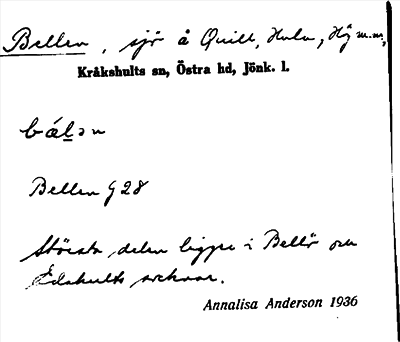 Bellen, sjö å Quill, Hulu, Häg m.m.,
Kråkshults sn, Östra hd, Jönk. l.
bä́l̲ən
Bellen G 28
Största delen ligger i Bellö och
Edshults socknar.
Annalisa Anderson 1936